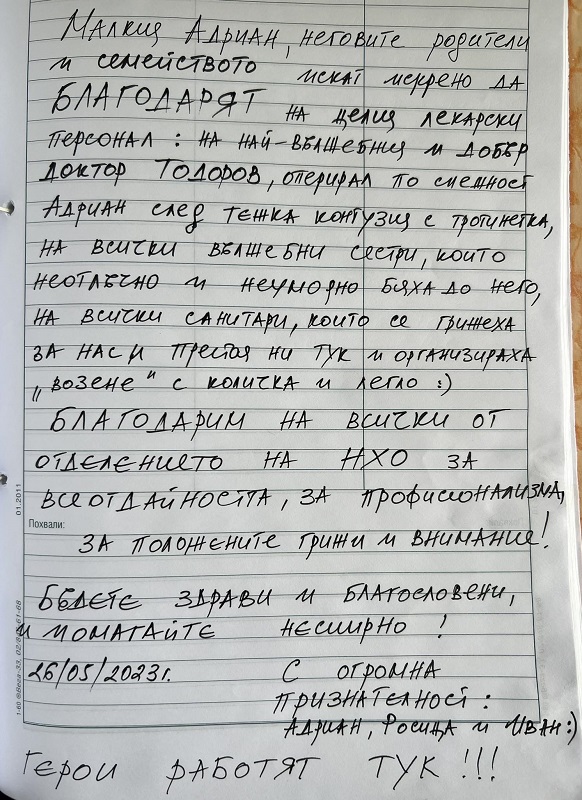 Малкия Адриан, неговите родители
и семейството искат искрено да
БЛАГОДАРЯТ на целия лекарски
персонал: на най-вълшебния и добър
доктор Тодоров, оперирал по спешност
Адриан след тежка контузия с тротинетка,
на всички вълшебни сестри, които
неотлъчно и неуморно бяха до него,
на всички санитари, които се грижеха
за нас и престоя ни тук и организираха
„возене" с количка и легло :)
БЛАГОДАРИМ на всички от
отделението на НХО за
всеотдайността, за професионализма,
Похвали:
за положените грижи и внимание!
Бъдете здрави и благословени,
и помагайте неспирно!
26/05/2023г. С огромна
признателност:
Адриан, Росица и Иван:)
Герои работят тук!!!
01.2011